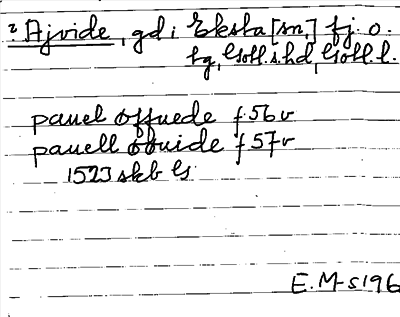 ? Ajvide, gd i Eksta [sn,] fj. o.
fg, Gotl. s. hd, Gotl. l.
pauel offuede f 56 v
pauell obuide f 57 v
1523 skb G
E. M-s 196